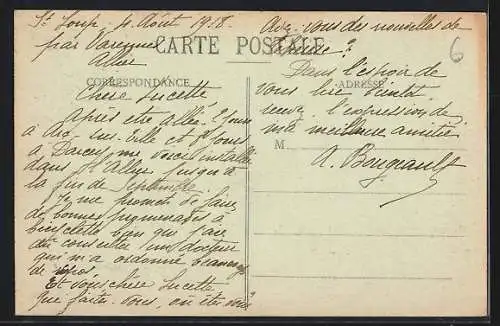 St Loup. 10 Août 1918.
par Varennes
Allier
CARTE POSTALE
CORRESPONDANCE
ADRESSE
M
6
Chère Lucette
Après être allée 2 jours
à Arc-sur-Tille et 8 jours
à Darcey me voici installée
dans l'Allier jusqu'à
la fin de Septembre.
Je me promets de faire
de bonnes promenades à
bicyclette bien que faire
du docteur
qui m'a ordonné beaucoup
de repos.
Et vous chère Lucette
que faites-vous, où êtes-vous?
Avez-vous des nouvelles de
Dans l'espoir de
vous lire bientôt
recevez l'expression de
ma meilleure amitié
A. Bougeault